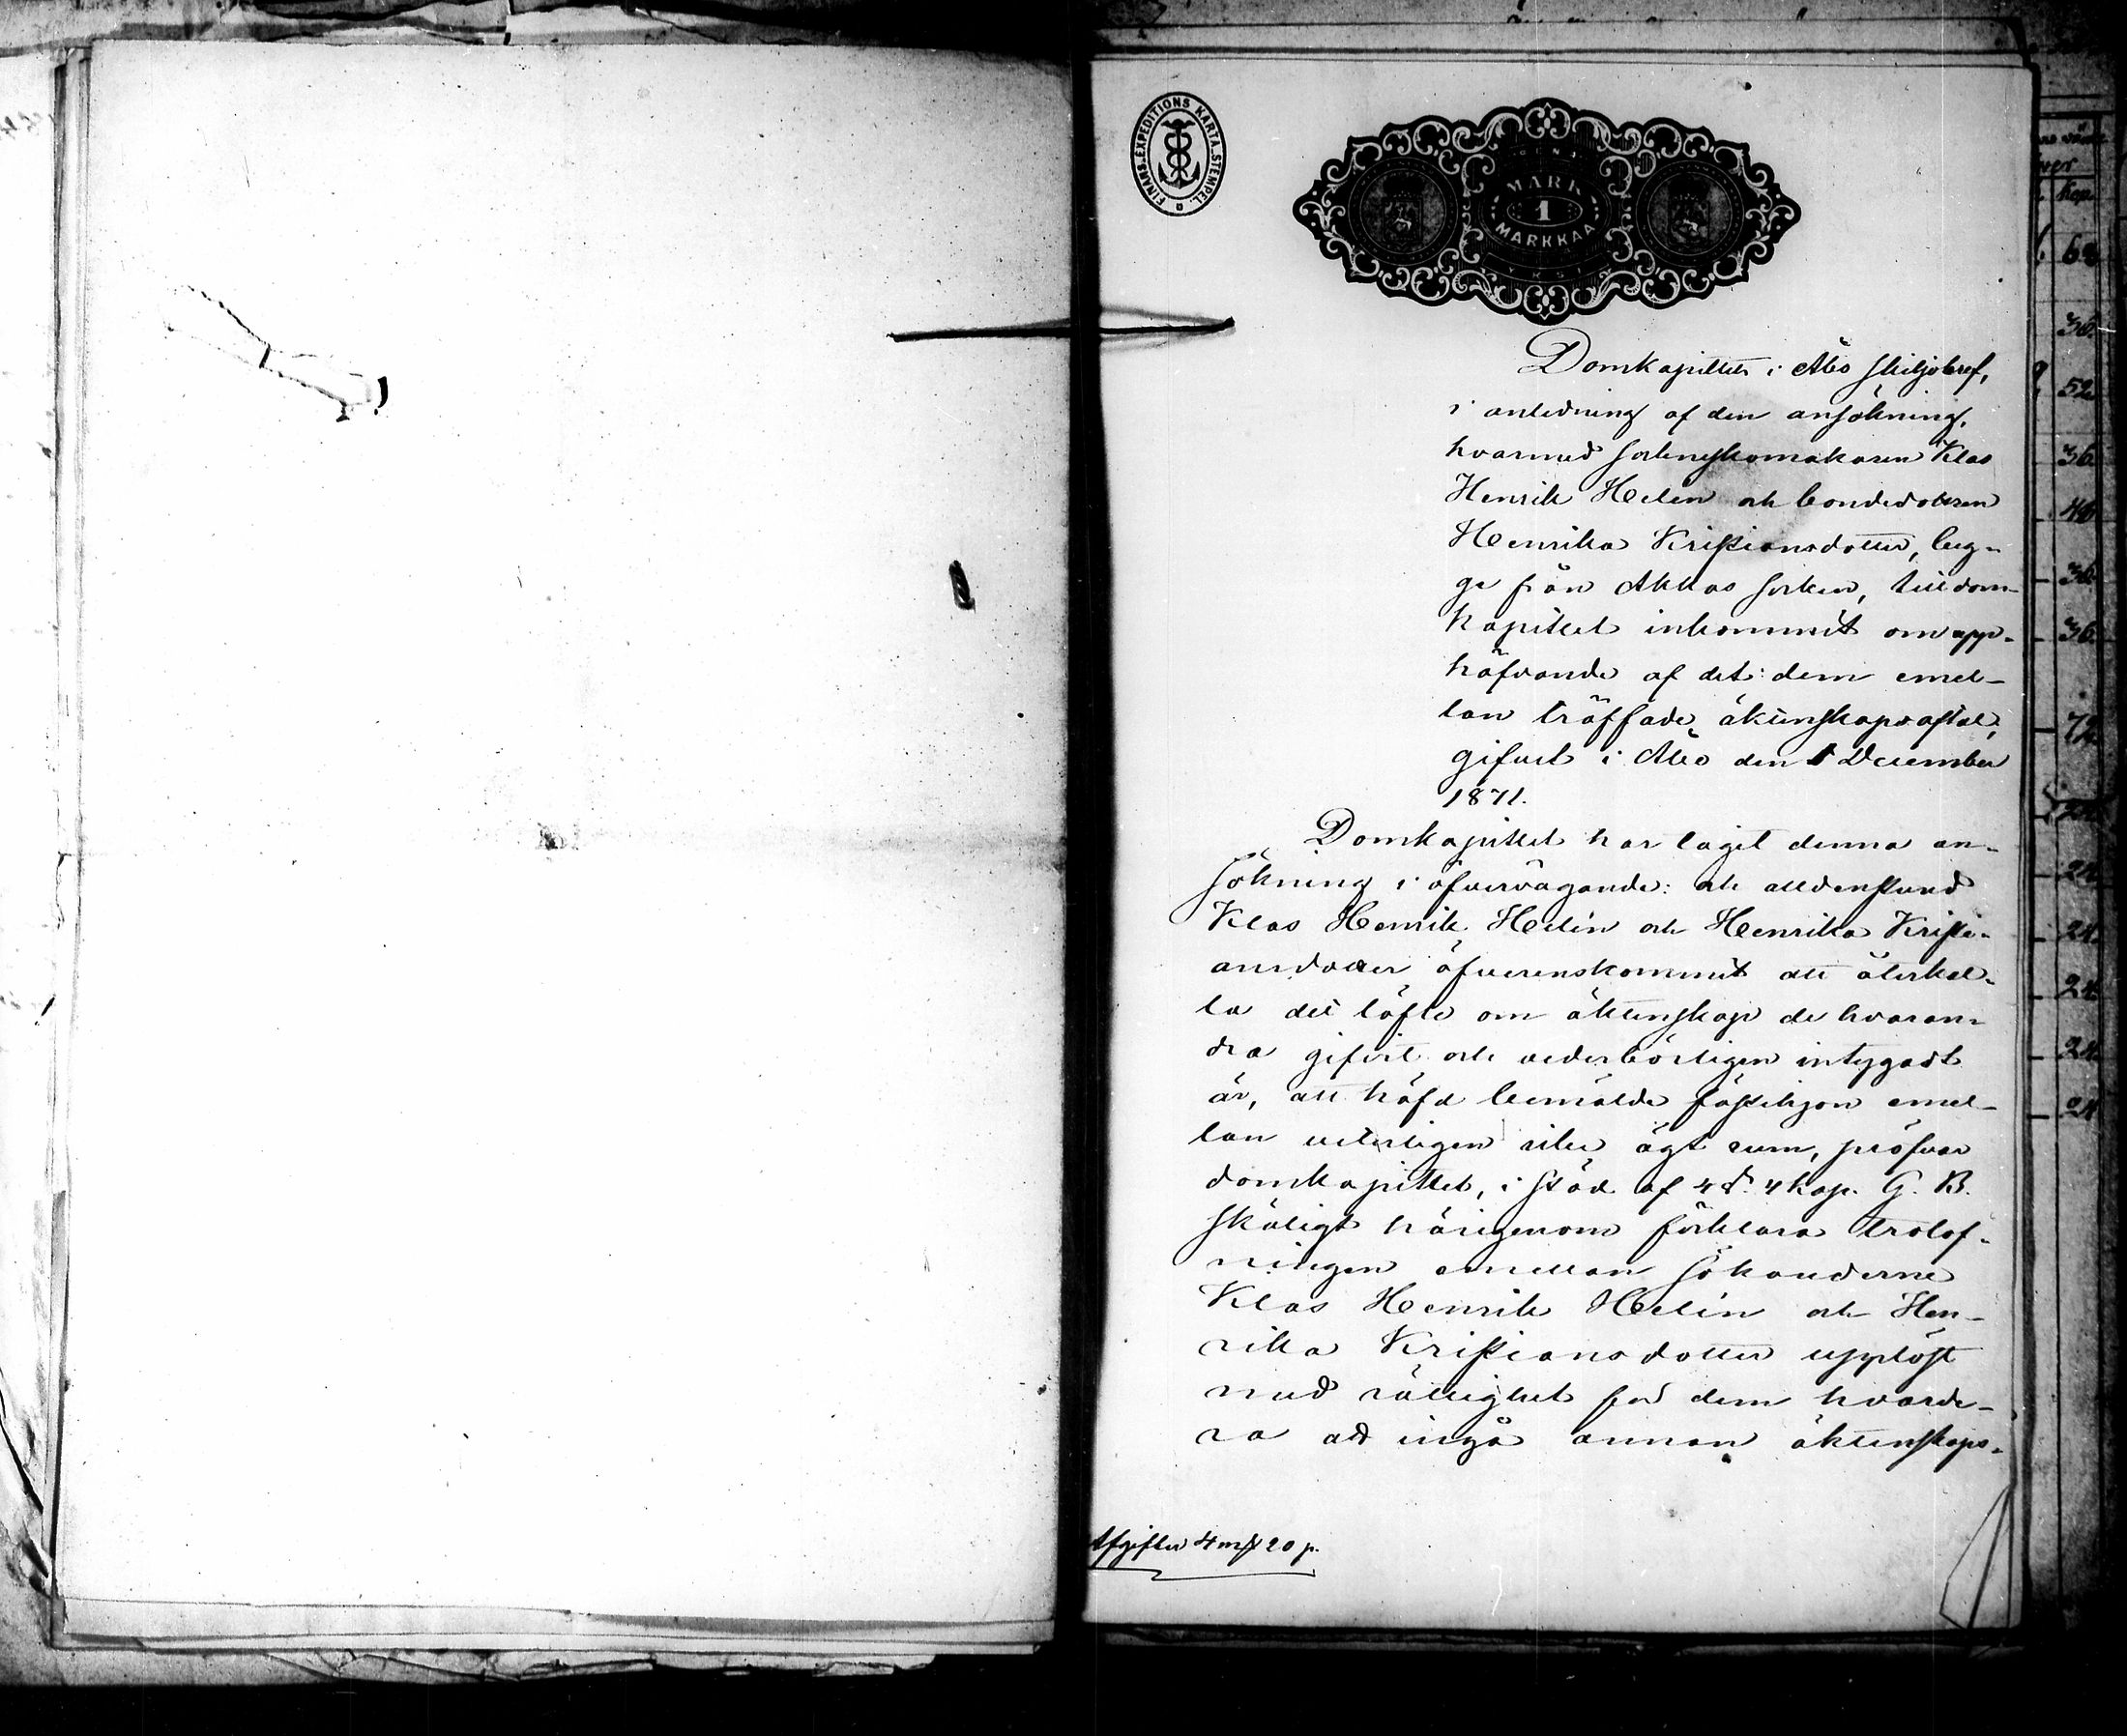 FINANS.EXPEDITIONS KARTA.STEMPEL.
MARK
1
MARKKAA
YKSI
Domkapitlets i Åbo skiljobref,
i anledning af den ansökning,
hvarmed sockneskomakaren Klas
Henrik Helin och bondedottren
Henrika Kristiansdotter, beg-
ge från Akkas socken, till dom-
kapitlet inkommit om upp-
häfvande af det dem emel-
lan träffade äktenskapsaftal,
gifvet i Åbo den 1 December
1871.
Domkapitlet har tagit denna an-
sökning i öfvervägande: och alldenstund
Klas Henrik Helin och Henrika Kristi-
ansdotter öfverenskommit att återkal-
la det löfte om äktenskap de hvaran-
dra gifvit och vederbörligen intygadt
är, att häfd bemälde fästehjon emel-
lan veterligen icke ägt rum, pröfvar
domkapitlet, i stöd af 4 §. 4 kap. G. B.
skäligt härigenom förklara trolof-
ningen emellan sökanderne
Klas Henrik Helin och Hen-
rika Kristiansdotter upplöst
med rättighet för dem hvarde-
ra att ingå annan äktenskaps-
Afgifter 4 mk 20 p.
kop.
62
36
52
36
40
36
36
72
24
24
24
24
24
24